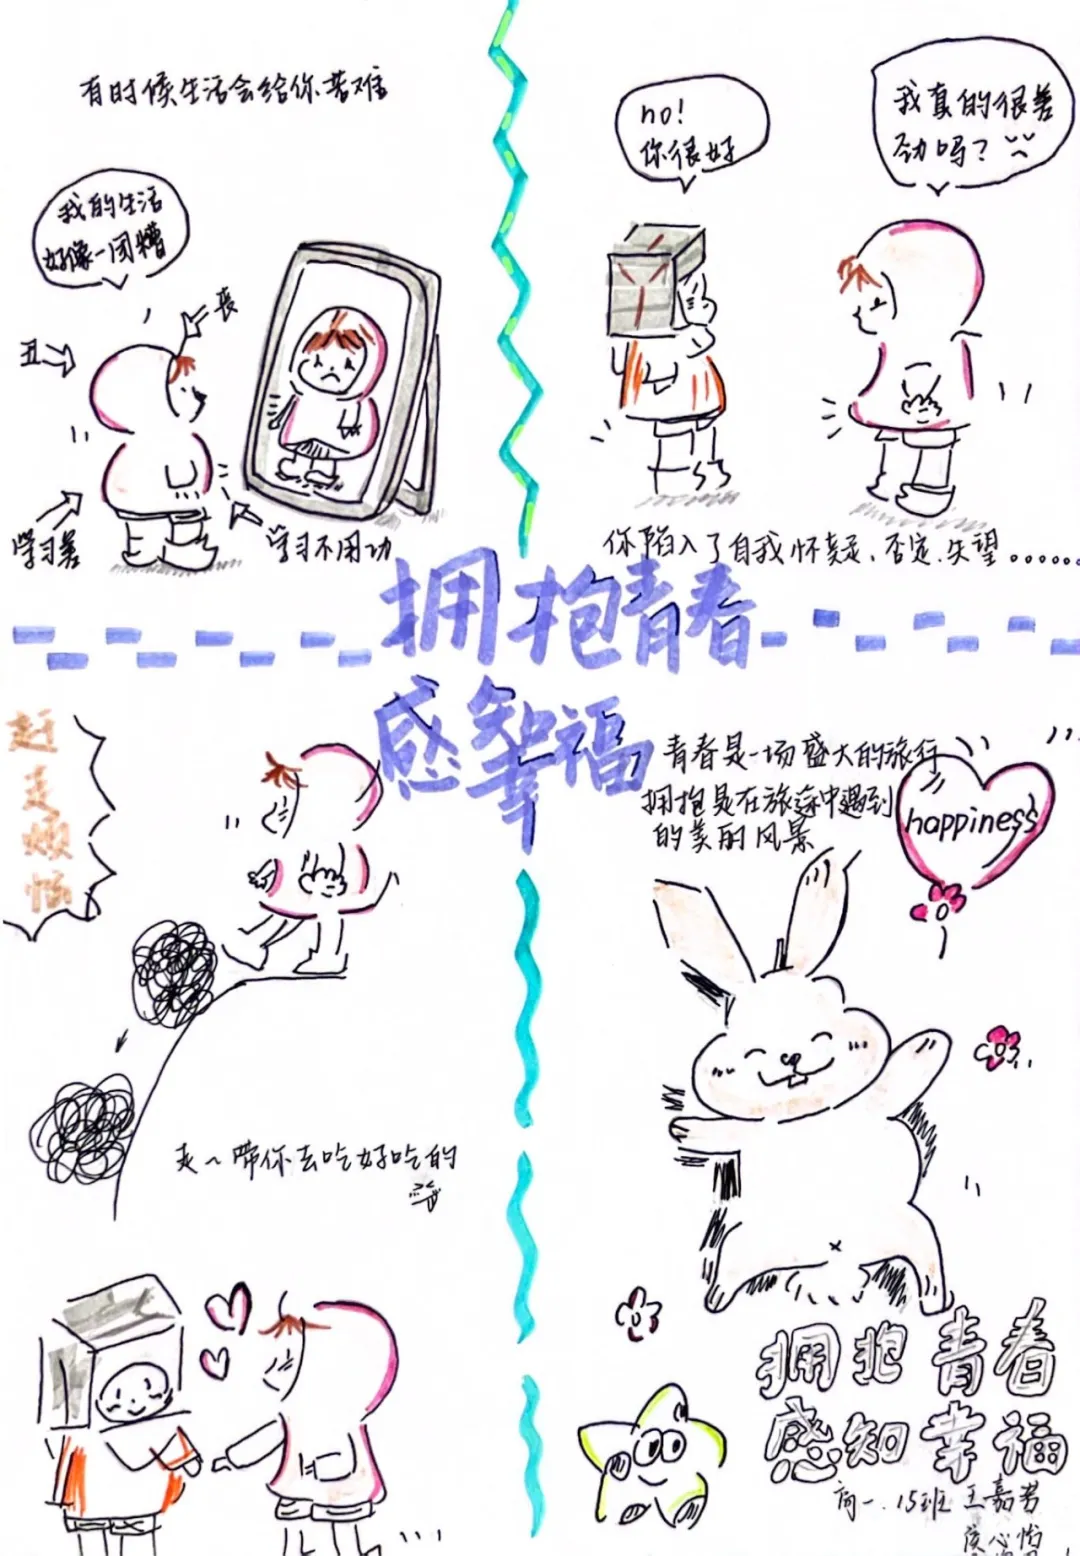 有时候生活会给你苦难
我的生活
好像一团糟
丧
丑
学习差
学习不用功
no!
你很好
我真的很差
劲吗?
你陷入了自我怀疑、否定、失望......
拥抱青春
感知幸福
赶走烦恼
走~带你去吃好吃的
青春是一场盛大的旅行
拥抱是在旅途中遇到
的美丽风景
happiness
拥抱青春
感知幸福
高一.15班 王嘉若